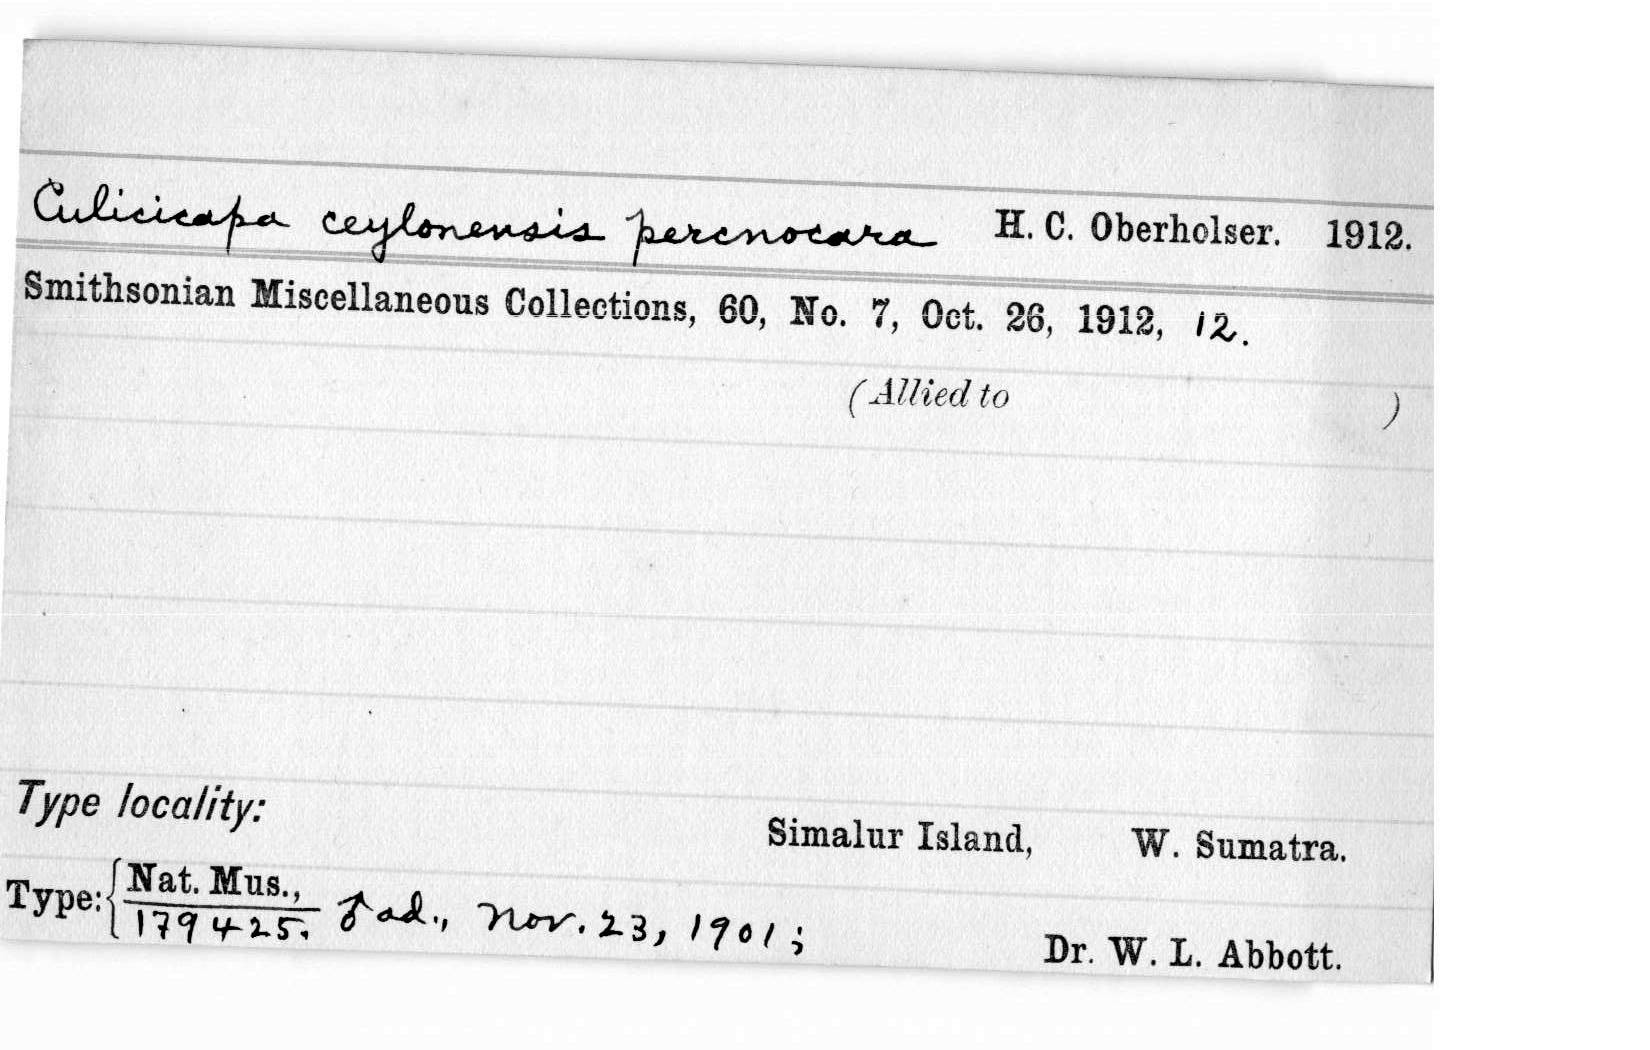 Culicicapa ceylonensis percnocara H. C. Oberholser. 1912.
Smithsonian Miscellaneous Collections, 60, No. 7, Oct. 26, 1912, 12.
(Allied to )
Type locality:
Simalur Island, W. Sumatra.
Type: { Nat. Mus.,
179425. ♂ ad., Nov. 23, 1901;
Dr. W. L. Abbott.